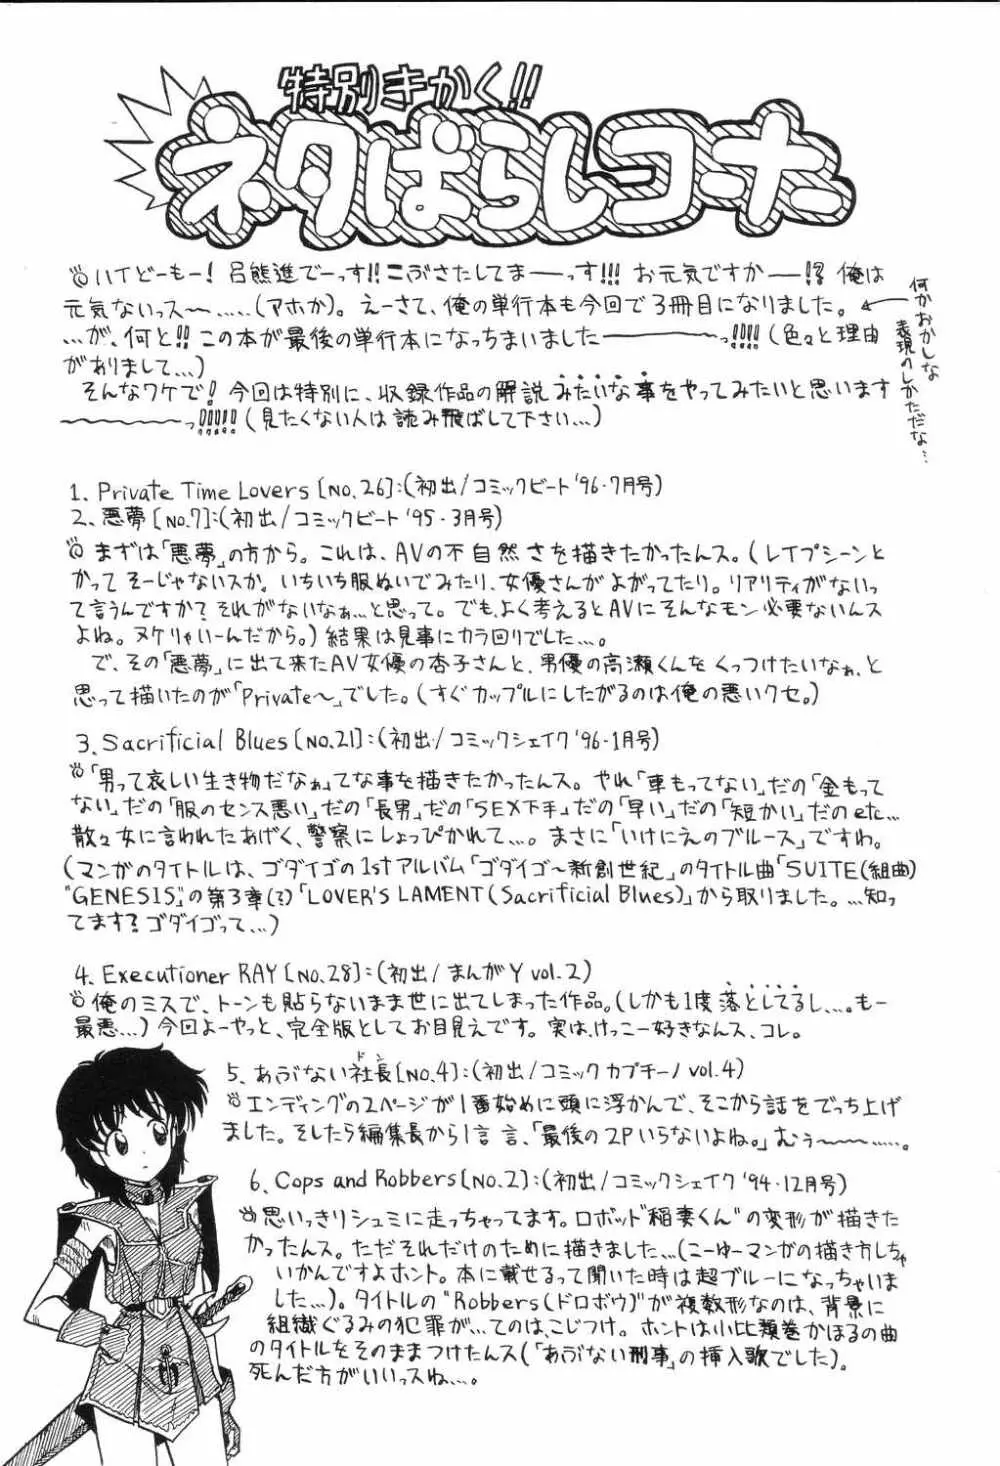 特別きかく!!
ネタばらしコーナー
ハイどーもー! 呂熊進でーっす!! ごぶさたしてまーーっす!!! お元気ですかー―!? 俺は
元気ないっス〜……(アホか)。えーさて、俺の単行本も今回で3冊目になりました。
…が、何と!! この本が最後の単行本になっちまいました――――〜っ!!!! (色々と理由
がありまして…)
そんなワケで! 今回は特別に、収録作品の解説みたいな事をやってみたいと思います
〜〜〜〜〜っ!!!!! (見たくない人は読み飛ばして下さい…)
何かおかしな
表現のしかただな…
1. Private Time Lovers [NO.26]:(初出/コミックビート'96・7月号)
2. 悪夢[NO.7]:(初出/コミックビート'95・3月号)
まずは「悪夢」の方から。これは、AVの不自然さを描きたかったんス。(レイプシーンと
かってそーじゃないスか。いちいち服ぬいでみたり、女優さんがよがってたり。リアリティがないっ
て言うんですか? それがないなぁ…と思って。でも、よく考えるとAVにそんなモン必要ないんス
よね。ヌケりゃいーんだから。) 結果は見事にカラ回りでした…。
で、その「悪夢」に出て来たAV女優の杏子さんと、男優の高瀬くんをくっつけたいなぁ、と
思って描いたのが「Private〜」でした。(すぐカップルにしたがるのは俺の悪いクセ。)
3. Sacrificial Blues[NO.21]:(初出/コミックシェイク'96・1月号)
「男って哀しい生き物だなぁ」てな事を描きたかったんス。やれ「車もってない」だの「金もって
ない」だの「服のセンス悪い」だの「長男」だの「SEX下手」だの「早い」だの「短かい」だのetc…
散々女に言われたあげく、警察にしょっぴかれて…。まさに「いけにえのブルース」ですわ。
(マンガのタイトルは、ゴダイゴの1stアルバム「ゴダイゴ〜新創世紀」のタイトル曲「SUITE(組曲)
"GENESIS」の第3章(?)「LOVER'S LAMENT(Sacrificial Blues)」から取りました。…知っ
てます? ゴダイゴって…)
4. Executioner RAY[NO.28]:(初出/まんがY vol.2)
俺のミスで、トーンも貼らないまま世に出てしまった作品。(しかも1度落としてるし…。もー
最悪…) 今回よーやっと、完全版としてお目見えです。実は、けっこー好きなんス、コレ。
5. あぶない社長[NO.4]:(初出/コミックカプチーノvol.4)
ドン
エンディングの2ページが1番始めに頭に浮かんで、そこから話をでっち上げ
ました。そしたら編集長から1言言、「最後の2Pいらないよね。」むぅ〜〜……。
6. Cops and Robbers[NO.2]:(初出/コミックシェイク'94・12月号)
思いっきりシュミに走っちゃってます。ロボッド"稲妻くん"の変形が描きた
かったんス。ただそれだけのために描きました…(こーゆーマンガの描き方しちゃ
いかんですよホント。本に載せるって聞いた時は超ブルーになっちゃいま
した…)。タイトルの"Robbers(ドロボウ)"が複数形なのは、背景に
組織ぐるみの犯罪が…てのは、こじつけ。ホントは小比類巻かほるの曲
のタイトルをそのままつけたんス(「あぶない刑事」の挿入歌でした)。
死んだ方がいいっスね…。